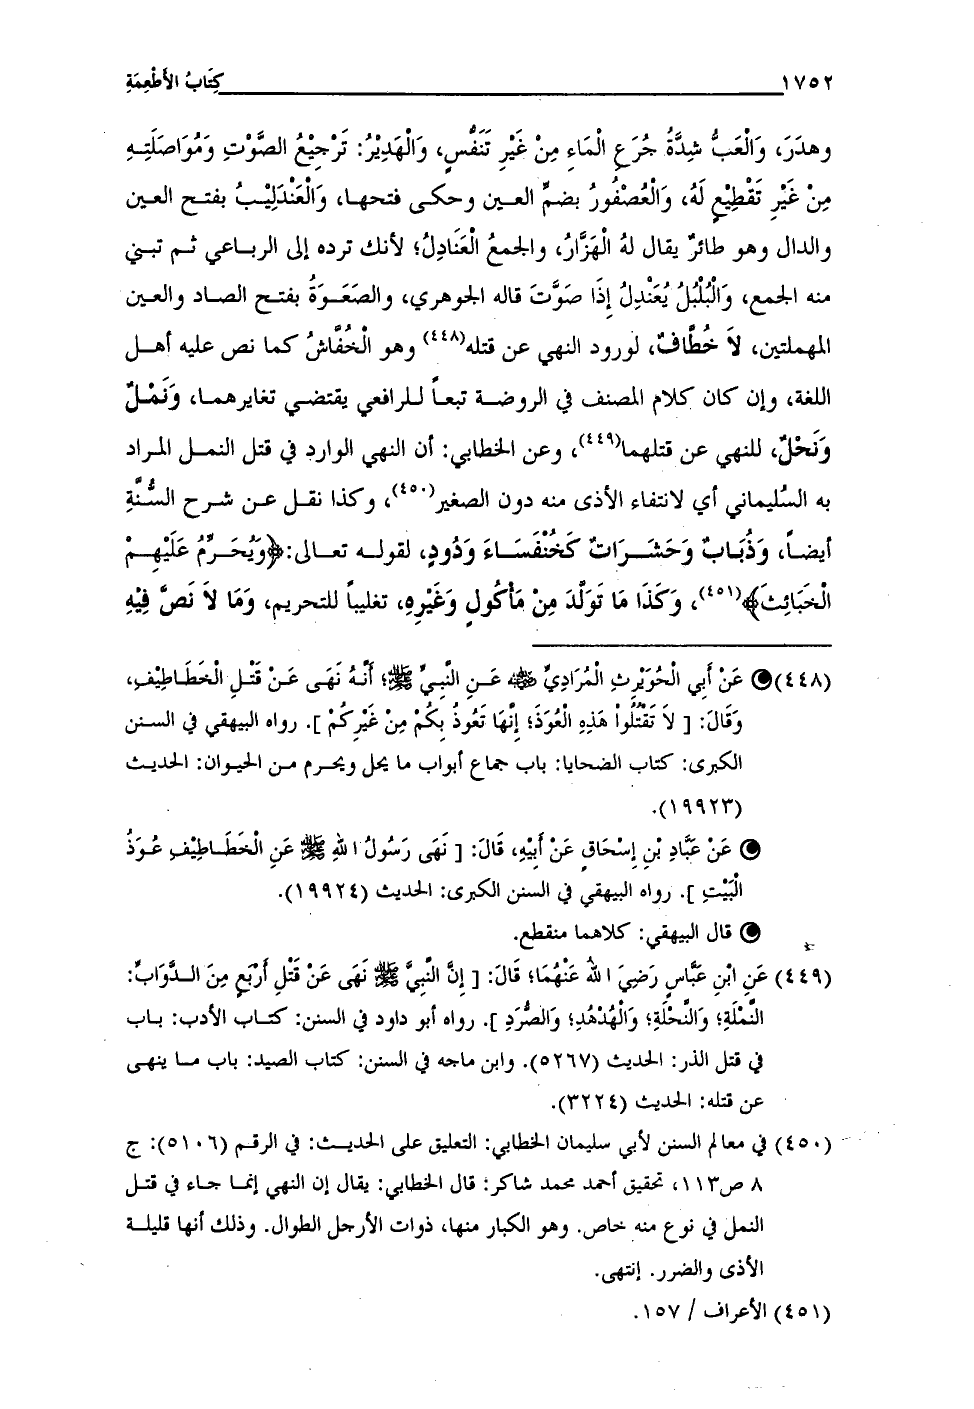 ١٧٥٢ كِتَابُ الأَطْعِمَةِ
وهدَرَ، وَالْعَبُّ شِدَّةُ جُرَعِ الْمَاءِ مِنْ غَيْرِ تَنَفُّسٍ، وَالْهَدِيْرُ: تَرْجِيْعُ الصَّوْتِ وَمُوَاصَلَتِهِ
مِنْ غَيْرِ تَقْطِيْعٍ لَهُ، وَالْعُصْفُورُ بضمِّ العين وحكى فتحها، وَالْعَنْدَلِيْبُ بفتح العين
والدال وهو طائرٌ يقال لهُ الْهَزَّارُ، والجمعُ الْعَنَادِلُ؛ لأنك ترده إلى الرباعي ثم تبني
منه الجمع، وَالْبُلْبُلُ يُعَنْدِلُ إِذَا صَوَّتَ قاله الجوهري، والصَعَوَةُ بفتح الصاد والعين
المهملتين، لاَ خُطَّافٌ، لورود النهي عن قتله(٤٤٨) وهو الْخُفَّاشُ كما نص عليه أهل
اللغة، وإن كان كلام المصنف في الروضة تبعاً للرافعي يقتضي تغايرهما، وَنَمْلٌ
وَنَحْلٌ، للنهي عن قتلهما(٤٤٩)، وعن الخطابي: أن النهي الوارد في قتل النمل المراد
به السُليماني أي لانتفاء الأذى منه دون الصغير(٤٥٠)، وكذا نقل عن شرح السُّنَّةِ
أيضاً، وَذُبَابٌ وَحَشَرَاتٌ كَخُنْفَسَاءَ وَدُودٍ، لقوله تعالى: ﴿وَيُحَرِّمُ عَلَيْهِمْ
الْخَبَائِثَ﴾(٤٥١)، وَكَذَا مَا تَوَلَّدَ مِنْ مَأْكُولٍ وَغَيْرِهِ، تغليباً للتحريم، وَمَا لاَ نَصَّ فِيْهِ
(٤٤٨) عَنْ أَبِي الْحُوَيْرِثِ الْمُرَادِيِّ ﷺ عَنِ النَّبِيِّ ﷺ؛ أَنَّهُ نَهَى عَنْ قَتْلِ الْخَطَاطِيْفِ،
وَقَالَ: [ لاَ تَقْتُلُواْ هَذِهِ الْعُوَذَ؛ إِنَّهَا تَعُوذُ بِكُمْ مِنْ غَيْرِكُمْ ]. رواه البيهقي في السنن
الكبرى: كتاب الضحايا: باب جماع أبواب ما يحل ويحرم من الحيوان: الحديث
(١٩٩٢٣).
عَنْ عَبَّادِ بْنِ إِسْحَاقٍ عَنْ أَبِيْهِ، قَالَ: [ نَهَى رَسُولُ اللهِ ﷺ عَنِ الْخَطَاطِيْفِ عُوَذُ
الْبَيْتِ ]. رواه البيهقي في السنن الكبرى: الحديث (١٩٩٢٤).
قال البيهقي: كلاهما منقطع.
(٤٤٩) عَنِ ابْنِ عَبَّاسٍ رَضِيَ اللهُ عَنْهُمَا؛ قَالَ: [ إِنَّ النَّبِيَّ ﷺ نَهَى عَنْ قَتْلِ أَرْبَعٍ مِنَ الدَّوَابِّ:
النَّمْلَةِ؛ وَالنَّحْلَةِ؛ وَالْهُدْهُدِ؛ وَالصُّرَدِ ]. رواه أبو داود في السنن: كتاب الأدب: باب
في قتل الذر: الحديث (٥٢٦٧). وابن ماجه في السنن: كتاب الصيد: باب ما ينهى
عن قتله: الحديث (٣٢٢٤).
(٤٥٠) في معالم السنن لأبي سليمان الخطابي: التعليق على الحديث: في الرقم (٥١٠٦): ج
٨ ص١١٣، تحقيق أحمد محمد شاكر: قال الخطابي: يقال إن النهي إنما جاء في قتل
النمل في نوع منه خاص. وهو الكبار منها، ذوات الأرجل الطوال. وذلك أنها قليلة
الأذى والضرر. إنتهى.
(٤٥١) الأعراف / ١٥٧.